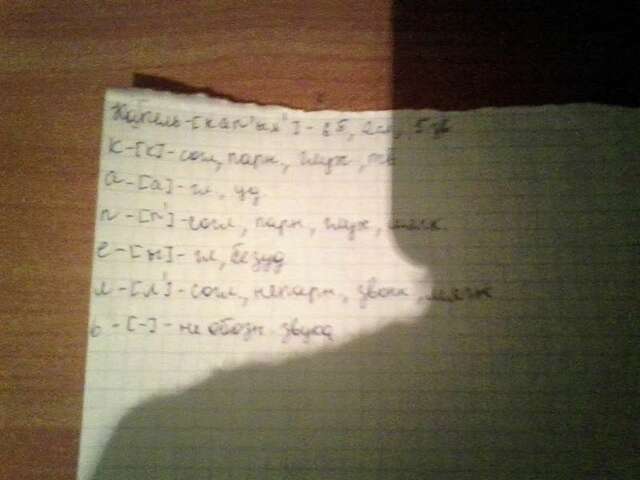 Капель-[кап'ыл']-6б, 2сл, 5 зв
к-[к]-согл, парн, глух, тв
а-[а]-гл, уд
п-[п']-согл, парн, глух, мягк
е-[ы]-гл, безуд
л-[л']-согл, непарн, звонк, мягк
ь-[-]-не обозн звука